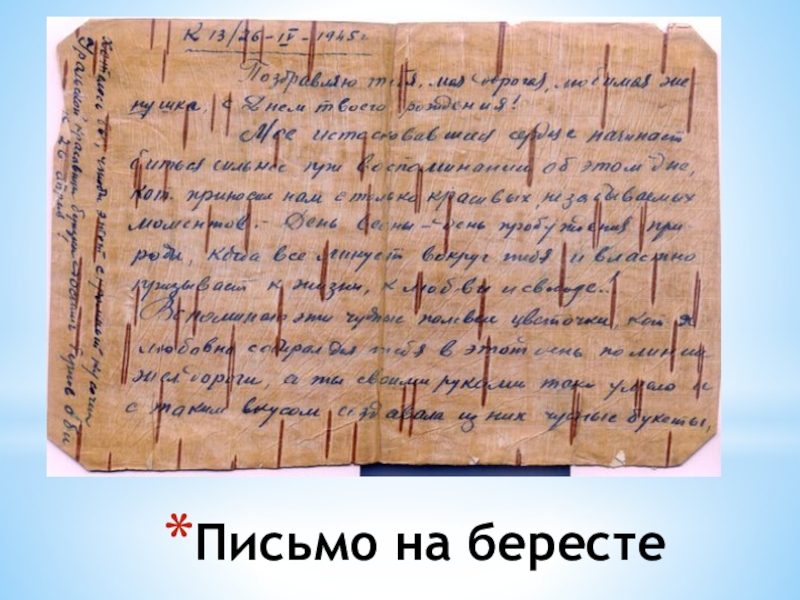 К 13/26-IV-1945г
Поздравляю тебя, моя дорогая, любимая же-
нушка, с Днем твоего рождения!
Мое истосковавшееся сердце начинает
биться сильнее при воспоминании об этом дне,
кот. приносил нам столько красивых незабываемых
моментов. - День весны - день пробуждения при-
роды, когда все вокруг тебя и властно
призывает к жизни, к любви и свободе..!
Вспоминаю эти чудные полевые цветочки, кот я
любовно собирал для тебя в этот день по линии
жел дороги, а ты своими руками так умело и
с таким вкусом создавала из них чудные букеты,
Хотелось бы, чтобы этот
Уральской
к 26 апреля
*Письмо на бересте